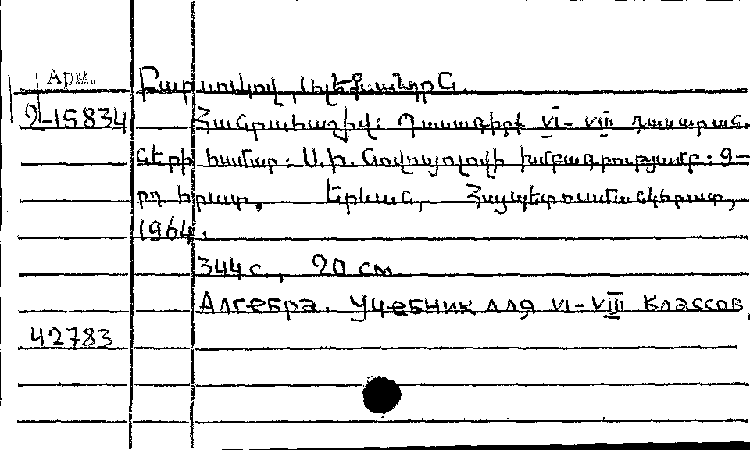 Арм.
Բարսուկով, Ալեքսանդր Ն.
2-15834
Հանրահաշիվ: Դասագիրք VI-VIII դասարան.
ների համար: Ս.Ի. Նովոսյոլովի խմբագրությամբ: 9-
րդ հրատ. Երևան, Հայպետուսմանկհրատ,
1964.
344 с., 20 см.
Алгебра. Учебник для VI-VIII классов.
42783